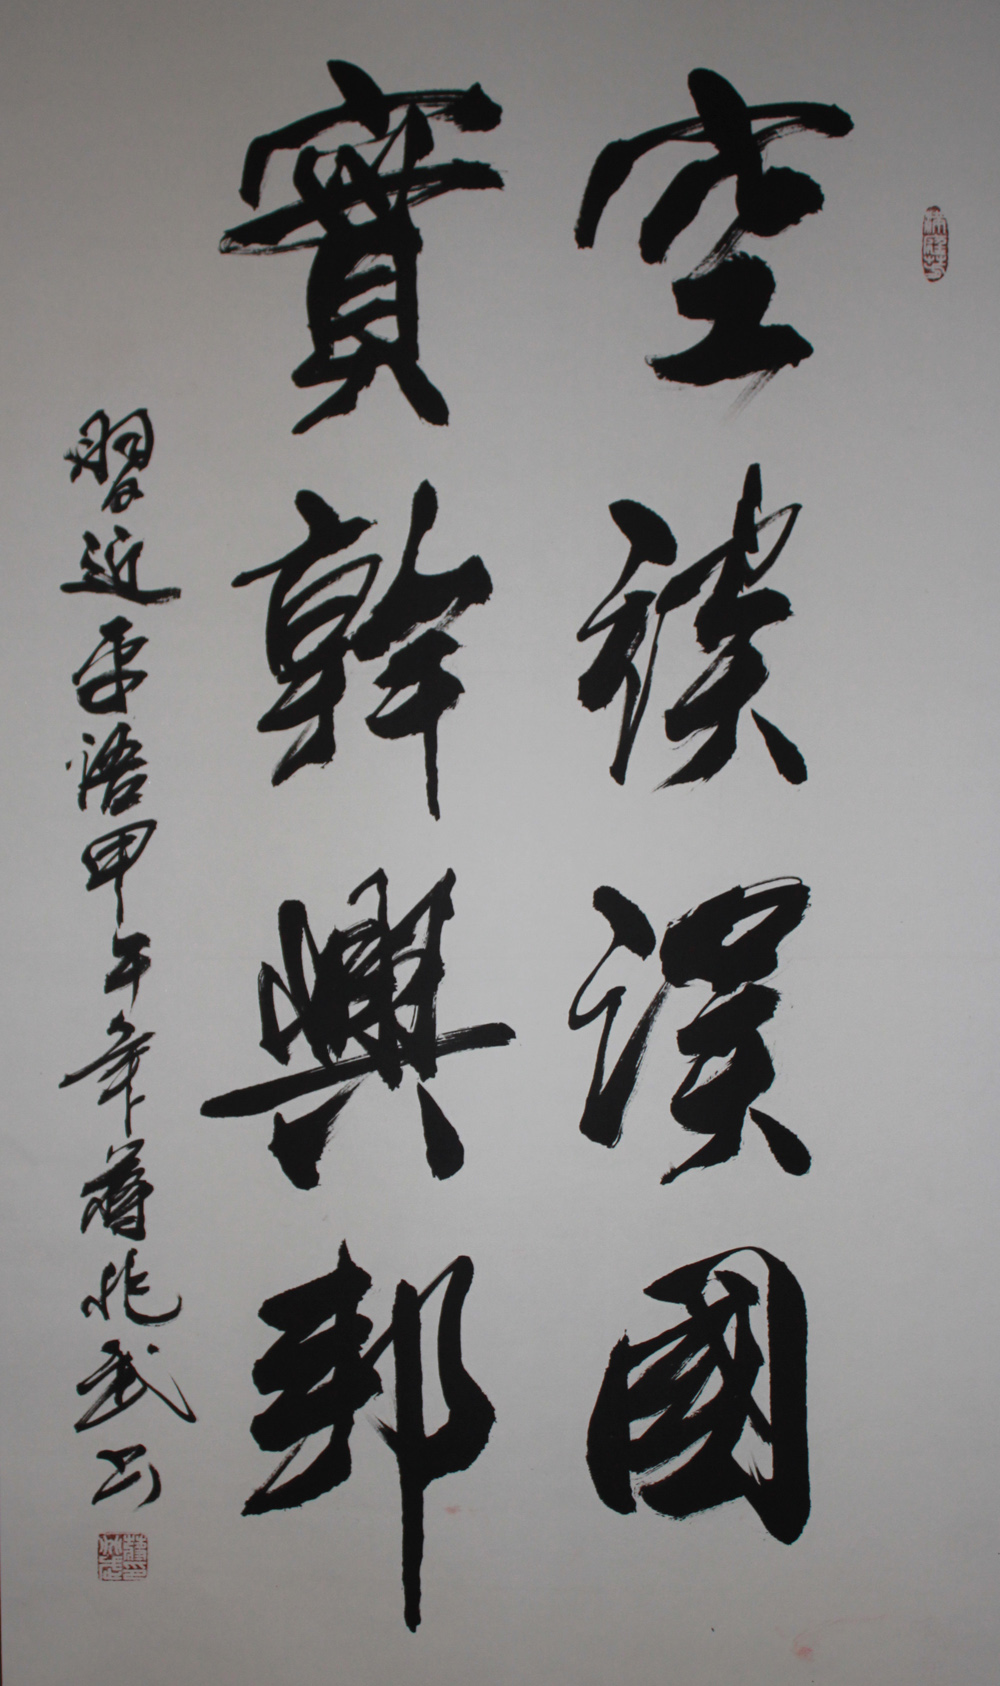 空談誤國
實幹興邦
習近平語甲午年蕭兆武书